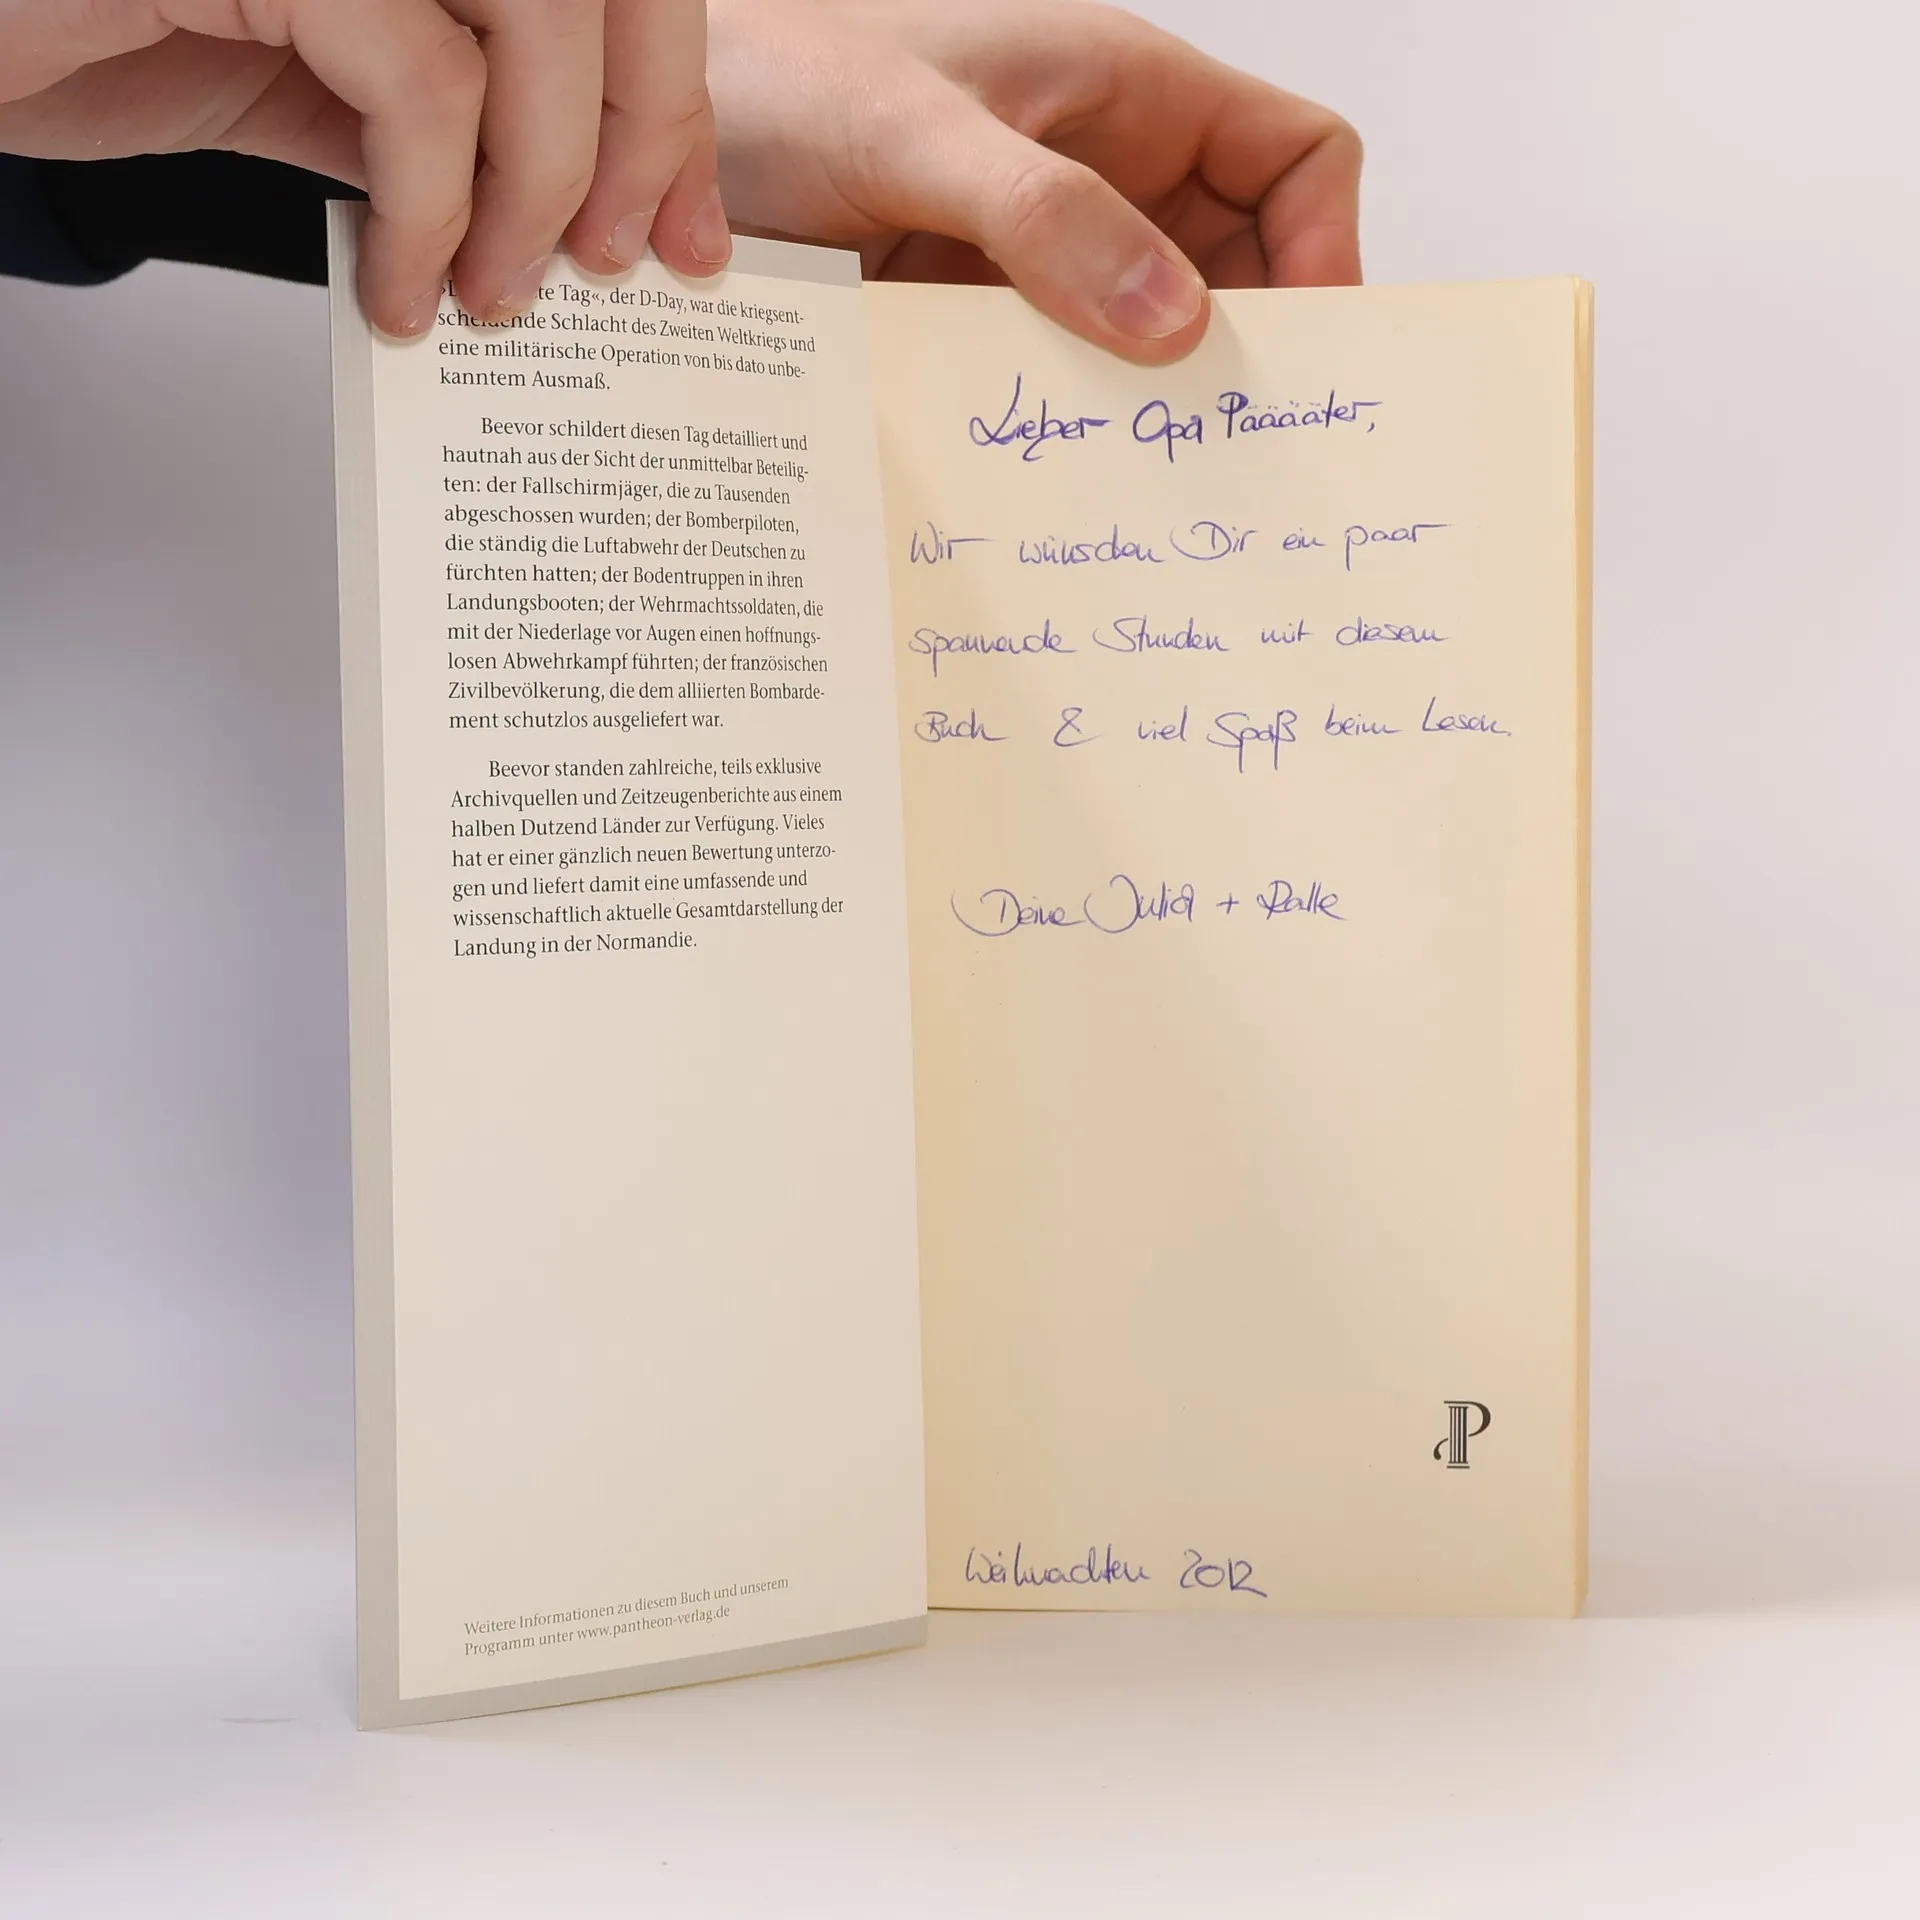 te Tag«, der D-Day, war die kriegsent-
scheidende Schlacht des Zweiten Weltkriegs und
eine militärische Operation von bis dato unbe-
kanntem Ausmaß.
Beevor schildert diesen Tag detailliert und
hautnah aus der Sicht der unmittelbar Beteilig-
ten: der Fallschirmjäger, die zu Tausenden
abgeschossen wurden; der Bomberpiloten,
die ständig die Luftabwehr der Deutschen zu
fürchten hatten; der Bodentruppen in ihren
Landungsbooten; der Wehrmachtssoldaten, die
mit der Niederlage vor Augen einen hoffnungs-
losen Abwehrkampf führten; der französischen
Zivilbevölkerung, die dem alliierten Bombarde-
ment schutzlos ausgeliefert war.
Beevor standen zahlreiche, teils exklusive
Archivquellen und Zeitzeugenberichte aus einem
halben Dutzend Länder zur Verfügung. Vieles
hat er einer gänzlich neuen Bewertung unterzo-
gen und liefert damit eine umfassende und
wissenschaftlich aktuelle Gesamtdarstellung der
Landung in der Normandie.
Weitere Informationen zu diesem Buch und unserem
Programm unter www.pantheon-verlag.de
Lieber Opa Pääääter,
Wir wünschen Dir ein paar
spannende Stunden mit diesem
Buch & viel Spaß beim Lesen.
Deine Julia + Ralle
P
Weihnachten 2012